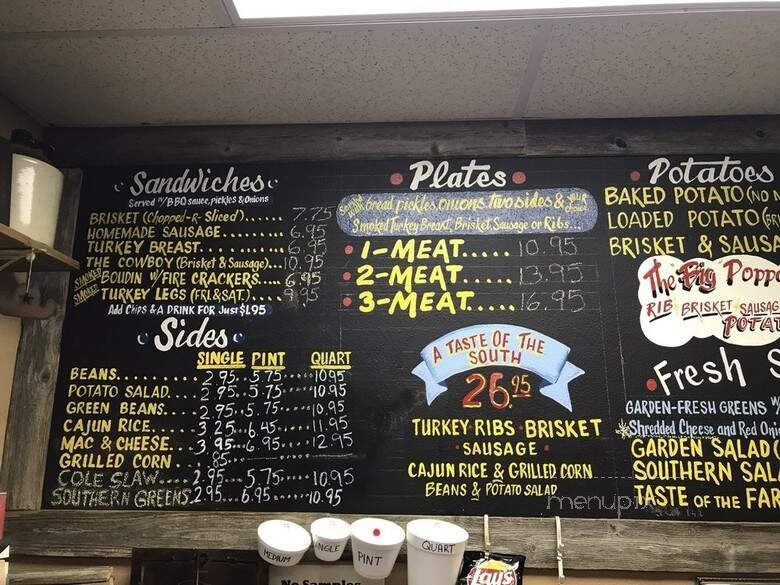 Sandwiches
Served w/BBQ sauce, pickles & Onions
BRISKET (Chopped-R-Sliced)...... 7.75
HOMEMADE SAUSAGE........ 6.95
TURKEY BREAST......... 6.95
THE COWBOY (Brisket & Sausage)... 10.95
SMOKED BOUDIN W/FIRE CRACKERS.... 6.95
SMOKED TURKEY LEGS (FRI.&SAT.)....
Add Chips & A DRINK FOR Just $1.95
Sides
SINGLE PINT QUART
BEANS......... 2.95...5.75.....10.95
POTATO SALAD.... 2.95...5.75.....10.95
GREEN BEANS.... 2.95...5.75.....10.95
CAJUN RICE..... 3.25...6.45.....11.95
MAC & CHEESE... 3.95...6.95.....12.95
GRILLED CORN... .85
COLE SLAW.... 2.95...5.75.....10.95
SOUTHERN GREENS 2.95...6.95.....10.95
Plates
Served W/ bread pickles, onions, two sides & YOUR choice
Smoked Turkey Breast, Brisket Sausage or Ribs...
1-MEAT..... 10.95
2-MEAT..... 13.95
3-MEAT..... 16.95
A TASTE OF THE
SOUTH
26.95
TURKEY RIBS BRISKET
SAUSAGE
CAJUN RICE & GRILLED CORN
BEANS & POTATO SALAD
Potatoes
BAKED POTATO (NO
LOADED POTATO
BRISKET & SAUS
The Big Popp
RIB BRISKET SAUSAG
POTAT
Fresh S
GARDEN-FRESH GREENS W
Shredded Cheese and Red Oni
GARDEN SALAD
SOUTHERN SAL
TASTE OF THE FAR
MEDIUM
INGLE
PINT
QUART
No Samples
Lay's